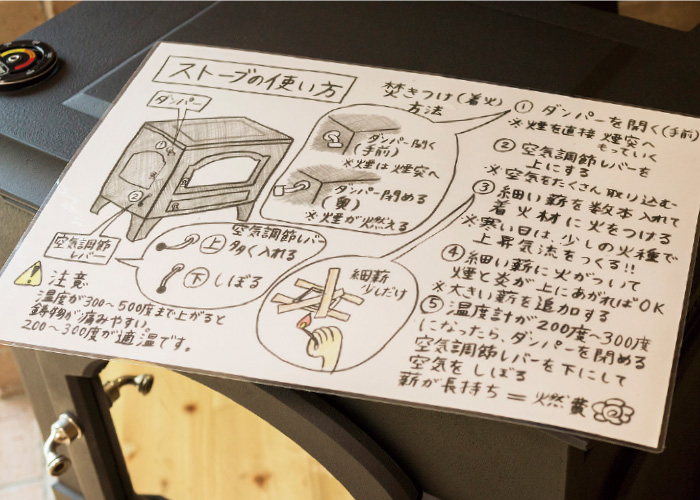 ストーブの使い方
ダンパー
空気調節
レバー
ダンパー開く
(手前)
※煙は煙突へ
ダンパー閉める
(奥)
※煙が燃える
空気調節レバー
上 多く入れる
下 しぼる
注意
温度が300〜500度まで上がると
鋳物が痛みやすい。
200〜300度が適温です。
細薪
少しだけ
焚きつけ(着火)
方法
① ダンパーを開く(手前)
※煙を直接 煙突へ
もっていく
② 空気調節レバーを
上にする
※空気をたくさん取り込む
③ 細い薪を数本入れて
着火材に火をつける
※寒い日は、少しの火種で
上昇気流をつくる!!
④ 細い薪に火がついて
煙と炎が上にあがればOK
※大きい薪を追加する
⑤ 温度計が200度〜300度
になったら、ダンパーを閉める
空気調節レバーを下にして
空気をしぼる
薪が長持ち = 燃費
① ②